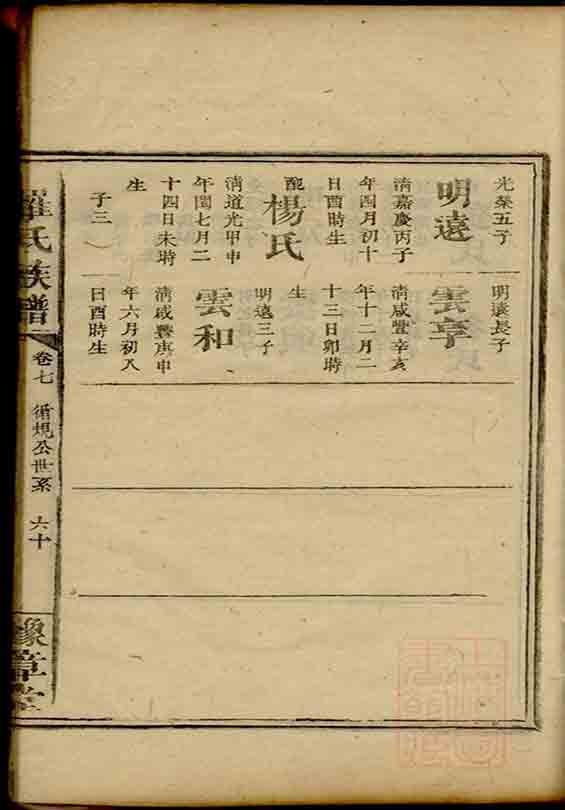 光榮五子
明遠
清嘉慶丙子
年四月初十
日酉時生
配楊氏
清道光甲申
年閏七月二
十四日未時
生
子三
明遠長子
雲亨
清咸豐辛亥
年十二月二
十三日卯時
生
明遠三子
雲和
清咸豐庚申
年六月初八
日酉時生
羅氏族譜
卷七 循規公世系 六十
豫章堂